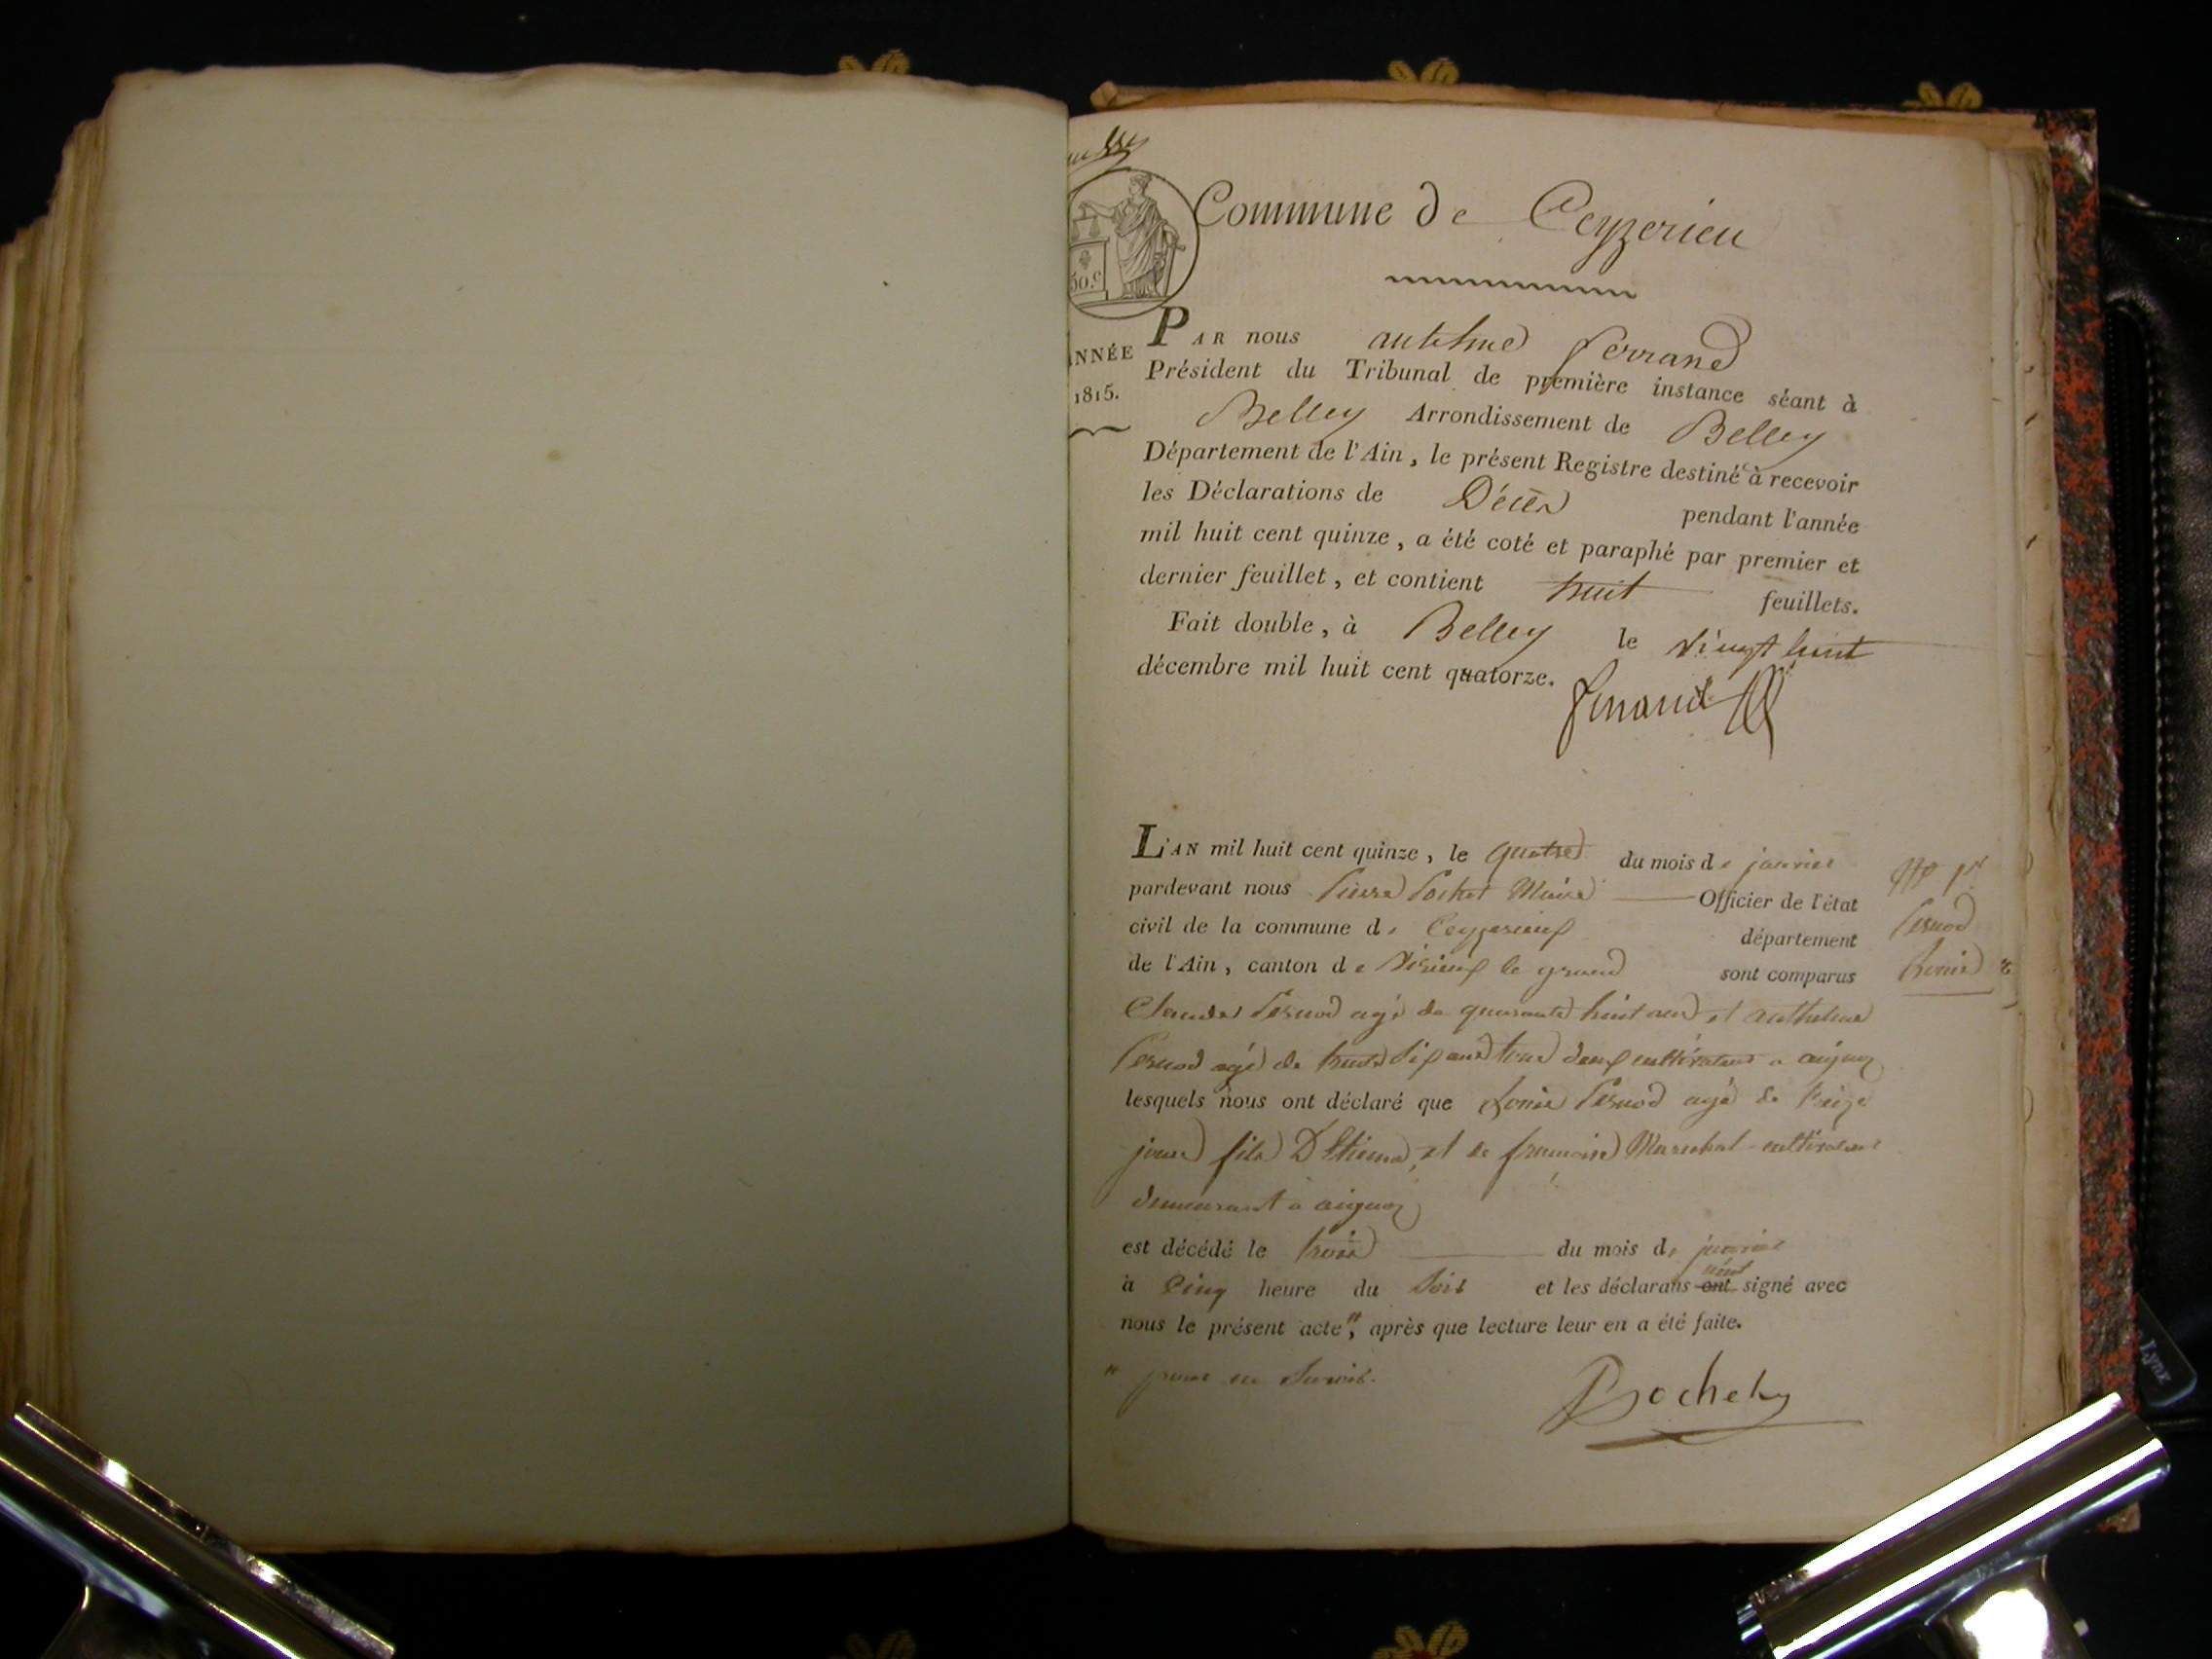 Commune de Ceyzerieu
50.c
ANNÉE
1815.
PAR nous anthelme ferrand
Président du Tribunal de première instance séant à
Belley Arrondissement de Belley
Département de l'Ain, le présent Registre destiné à recevoir
les Déclarations de Décès pendant l'année
mil huit cent quinze, a été coté et paraphé par premier et
dernier feuillet, et contient huit feuillets.
Fait double, à Belley le vingt huit
décembre mil huit cent quatorze.
ferrand
L'AN mil huit cent quinze, le quatre du mois de janvier
pardevant nous Pierre Pochet Maire Officier de l'état
civil de la commune de Ceyzerieux département
de l'Ain, canton de Virieux le grand sont comparus
Claude Pernod agé de quarante huit ans et anthelme
Pernod agé de trente six ans tous deux cultivateurs a aignoz
lesquels nous ont déclaré que Louis Pernod agé de treize
jours fils D'Etienne, et de francoise Marechal cultivateurs
demeurant à aignoz
est décédé le trois du mois de janvier
à Cinq heure du Soir et les déclarans ont n'ont signé avec
nous le présent acte", après que lecture leur en a été faite.
" pour ne Savoir.
Pochety
N° 1er
Pernod
Louis
Lynx